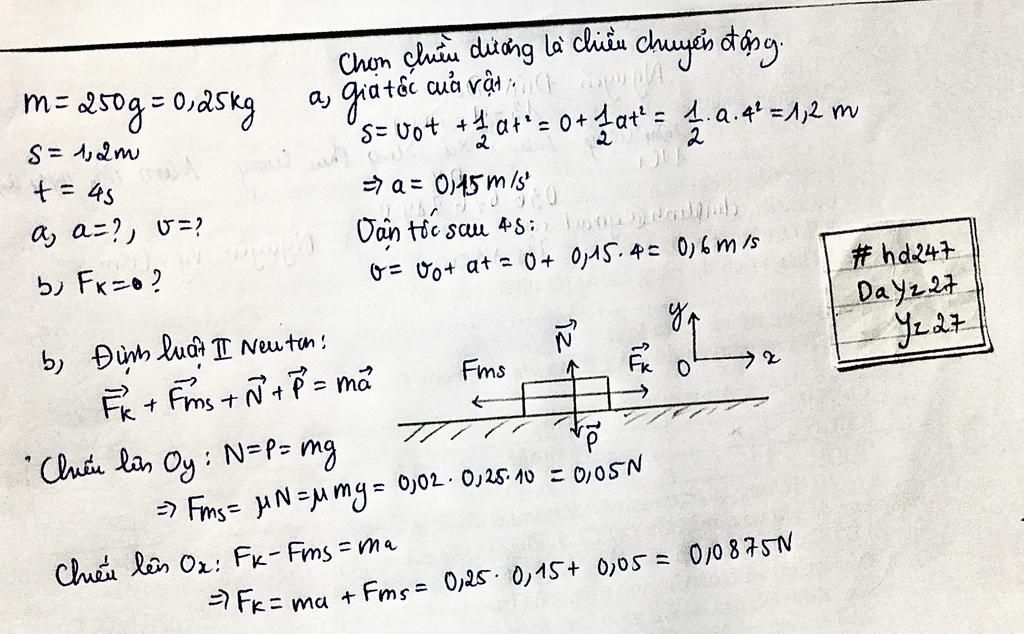 Chọn chiều dương là chiều chuyển động.
m = 250g = 0,25kg
s = 1,2m
t = 4s
a, a=?, v=?
b, Fk=?
a, Gia tốc của vật:
s = v₀t + 1/2 at² = 0 + 1/2 at² = 1/2 . a . 4² = 1,2 m
⇒ a = 0,15 m/s²
Vận tốc sau 4s:
v = v₀ + at = 0 + 0,15 . 4 = 0,6 m/s
# hd247
DaYz27
Yz27
b, Định luật II Newton:
F⃗k + F⃗ms + N⃗ + P⃗ = ma⃗
Fms
N⃗
F⃗k
P⃗
y
O
x
Chiếu lên Oy: N=P= mg
⇒ Fms = μN = μmg = 0,02 . 0,25 . 10 = 0,05N
Chiếu lên Ox: Fk - Fms = ma
⇒ Fk = ma + Fms = 0,25 . 0,15 + 0,05 = 0,0875N